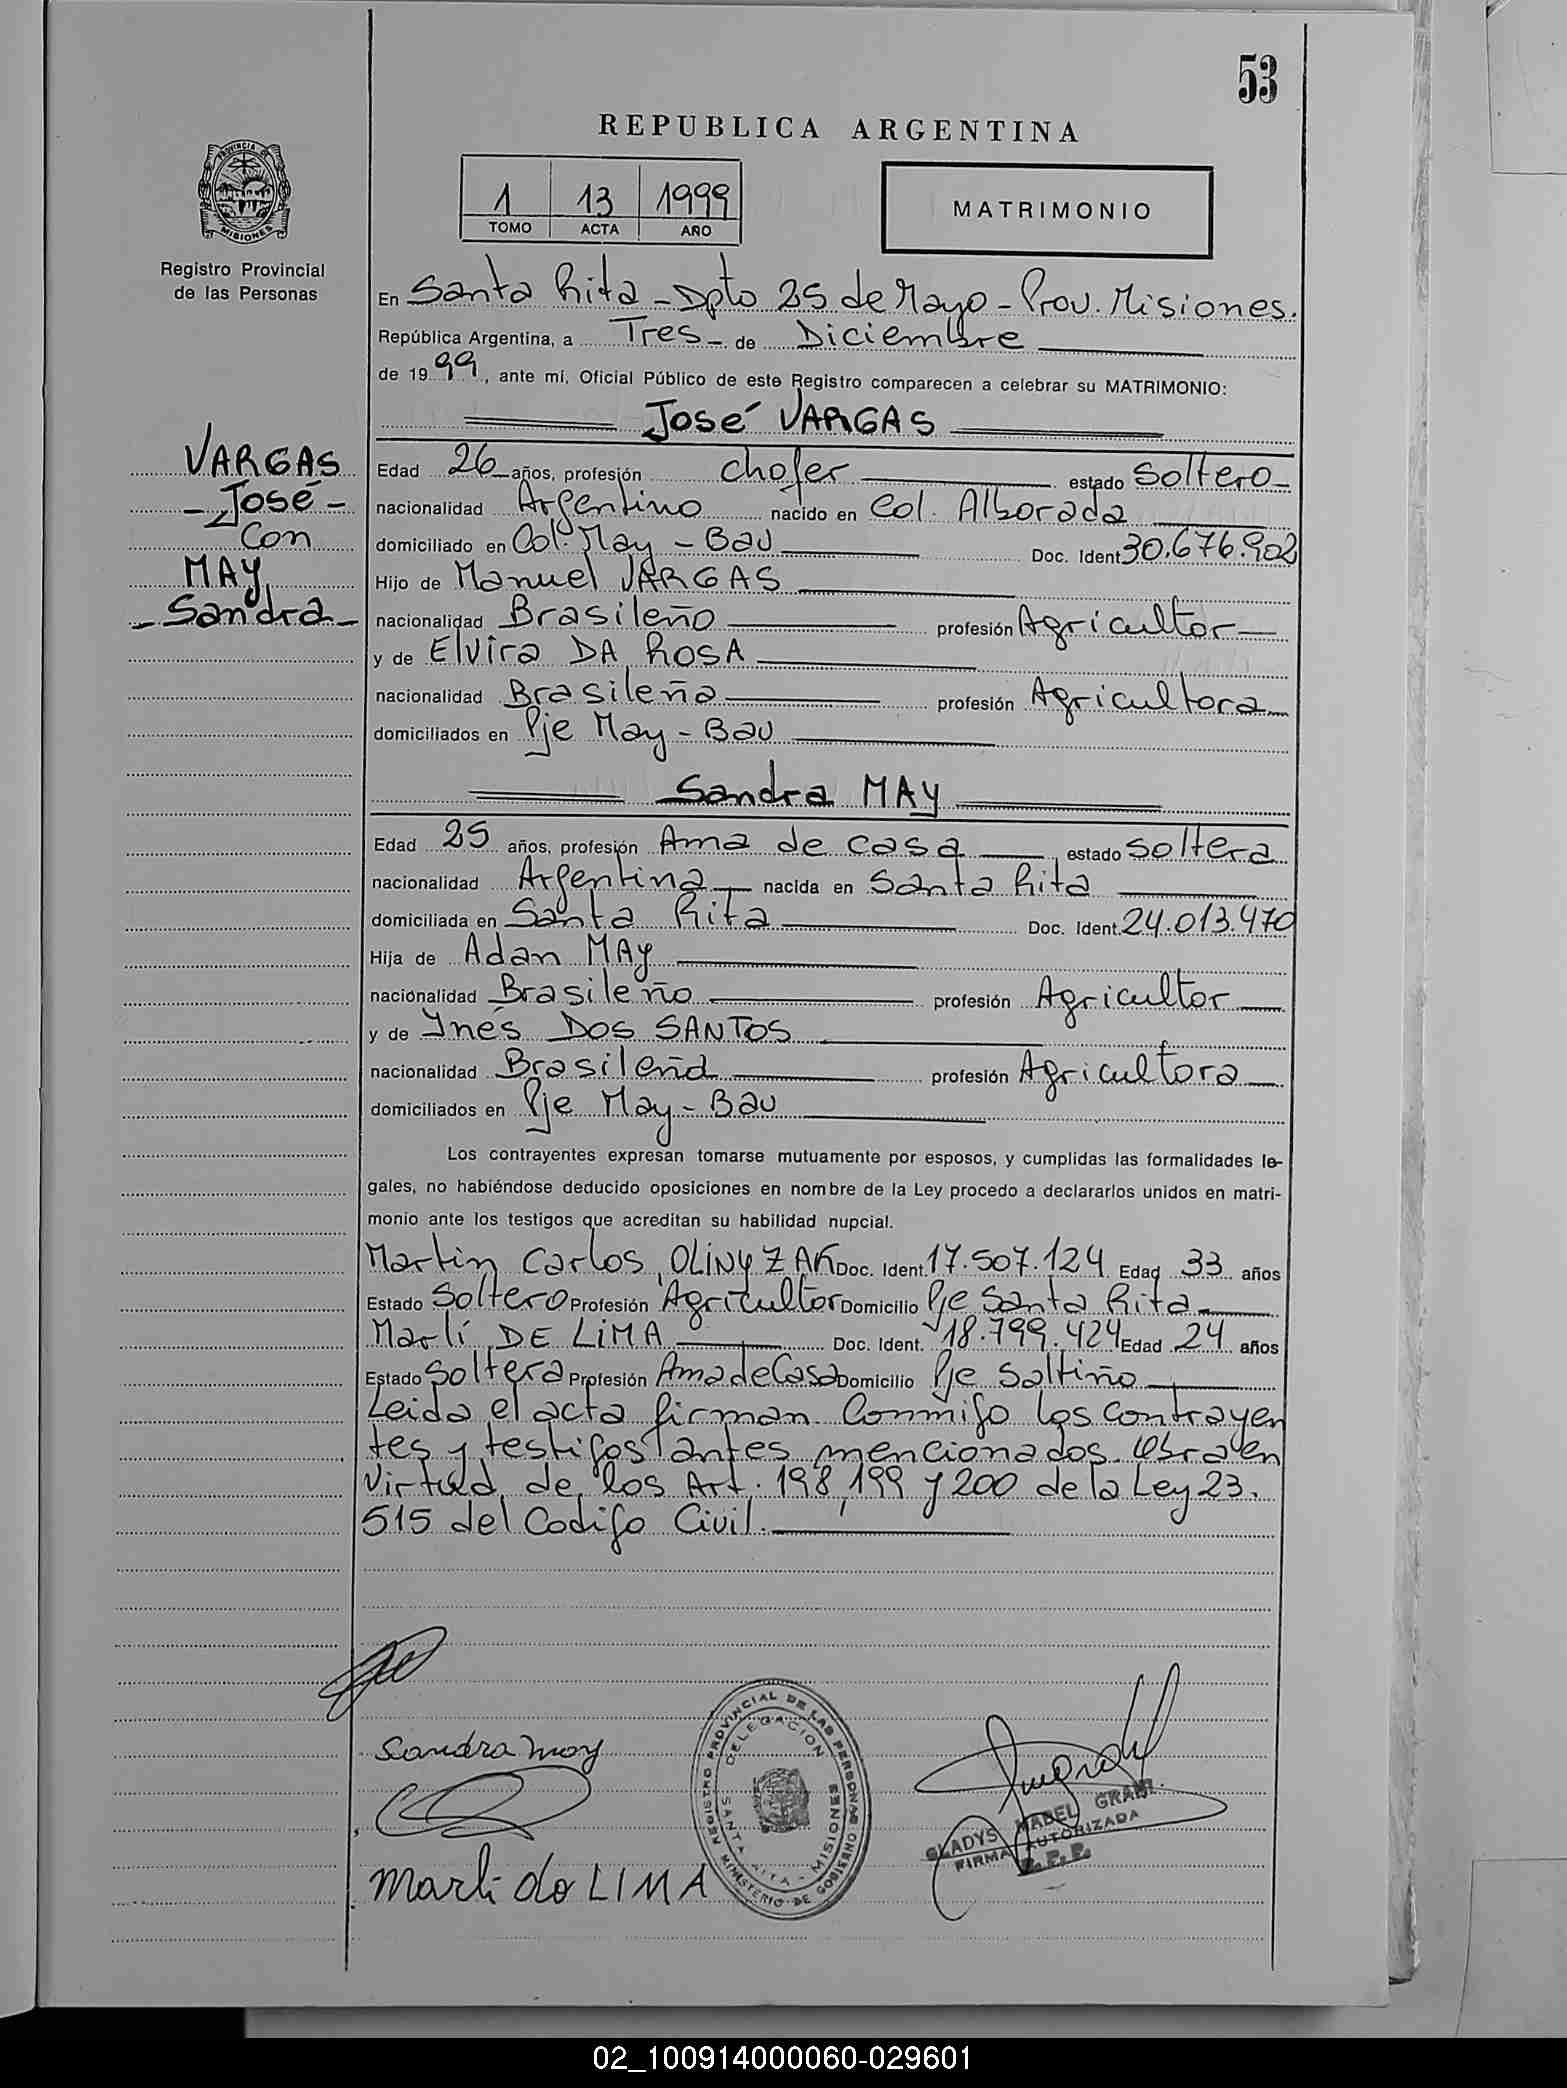 53
REPUBLICA ARGENTINA
1 13 1999
TOMO ACTA AÑO
MATRIMONIO
PROVINCIA DE
MISIONES
Registro Provincial
de las Personas
En Santa Rita - Dpto 25 de Mayo - Prov. Misiones.
República Argentina, a Tres - de Diciembre
de 1999, ante mí, Oficial Público de este Registro comparecen a celebrar su MATRIMONIO:
José VARGAS
VARGAS
- José -
Con
MAY
- Sandra -
Edad 26 años, profesión chofer estado soltero -
nacionalidad Argentino nacido en Col. Alborada
domiciliado en Col. May - Bau Doc. Ident 30.676.902
Hijo de Manuel VARGAS
nacionalidad Brasileño profesión Agricultor
y de Elvira DA ROSA
nacionalidad Brasileña profesión Agricultora
domiciliados en Pje May - Bau
Sandra MAY
Edad 25 años, profesión Ama de casa estado soltera
nacionalidad Argentina nacida en Santa Rita
domiciliada en Santa Rita Doc. Ident. 24.013.470
Hija de Adan MAY
nacionalidad Brasileño profesión Agricultor
y de Ynés DOS SANTOS
nacionalidad Brasileña profesión Agricultora
domiciliados en Pje May - Bau
Los contrayentes expresan tomarse mutuamente por esposos, y cumplidas las formalidades le-
gales, no habiéndose deducido oposiciones en nombre de la Ley procedo a declararlos unidos en matri-
monio ante los testigos que acreditan su habilidad nupcial.
Martin Carlos OLINYZAK Doc. Ident. 17.507.124 Edad 33 años
Estado Soltero Profesión Agricultor Domicilio Pje Santa Rita
Marlí DE LIMA Doc. Ident. 18.799.424 Edad 24 años
Estado Soltera Profesión Ama de Casa Domicilio Pje Saltiño
Leida el acta firman Conmigo los contrayen
tes y testigos antes mencionados. Obra en
Virtud de los Art. 198, 199 y 200 de la Ley 23.
515 del Codigo Civil.
Sandra may
Marli de LIMA
REGISTRO PROVINCIAL DE LAS PERSONAS
MINISTERIO DE GOBIERNO
DELEGACION
SANTA RITA - MISIONES
GLADYS MABEL
FIRMA AUTORIZADA
R.P.P.
02_100914000060-029601